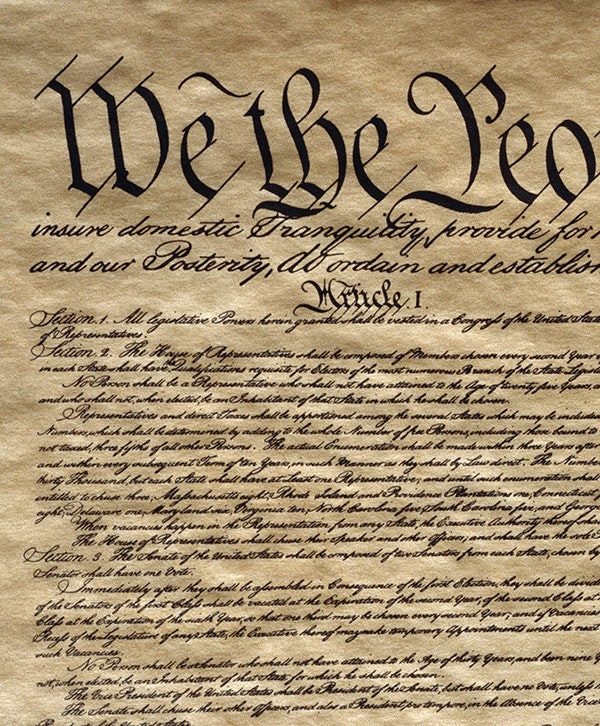 We the Peo
insure domestic Tranquility, provide for
and our Posterity, do ordain and establish
Article I.
Section. 1. All legislative Powers herein granted shall be vested in a Congress of the United States
of Representatives.
Section. 2. The House of Representatives shall be composed of Members chosen every second Year
in each State shall have Qualifications requisite for Electors of the most numerous Branch of the State Legisl
No Person shall be a Representative who shall not have attained to the Age of twenty five Years,
and who shall not, when elected, be an Inhabitant of that State in which he shall be chosen.
Representatives and direct Taxes shall be apportioned among the several States which may be included
Numbers, which shall be determined by adding to the whole Number of free Persons, including those bound to
not taxed, three fifths of all other Persons. The actual Enumeration shall be made within three Years after
and within every subsequent Term of ten Years, in such Manner as they shall by Law direct. The Number
thirty Thousand, but each State shall have at Least one Representative; and until such enumeration shall
entitled to chuse three, Massachusetts eight, Rhode Island and Providence Plantations one, Connecticut
eight, Delaware one, Maryland six, Virginia ten, North Carolina five, South Carolina five, and Georg
When vacancies happen in the Representation from any State, the Executive Authority thereof shall
The House of Representatives shall chuse their Speaker and other Officers; and shall have the sole P
Section. 3. The Senate of the United States shall be composed of two Senators from each State, chosen by
Senator shall have one Vote.
Immediately after they shall be assembled in Consequence of the first Election, they shall be divided
of the Senators of the first Class shall be vacated at the Expiration of the second Year, of the second Class at
Class at the Expiration of the sixth Year, so that one third may be chosen every second Year; and if Vacancies
Recess of the Legislature of any State, the Executive thereof may make temporary Appointments until the next
such Vacancies.
No Person shall be a Senator who shall not have attained to the Age of thirty Years, and been nine Y
not, when elected, be an Inhabitant of that State for which he shall be chosen.
The Vice President of the United States shall be President of the Senate, but shall have no Vote, unless
The Senate shall chuse their other Officers, and also a President pro tempore, in the Absence of the Vice
President of the United States.